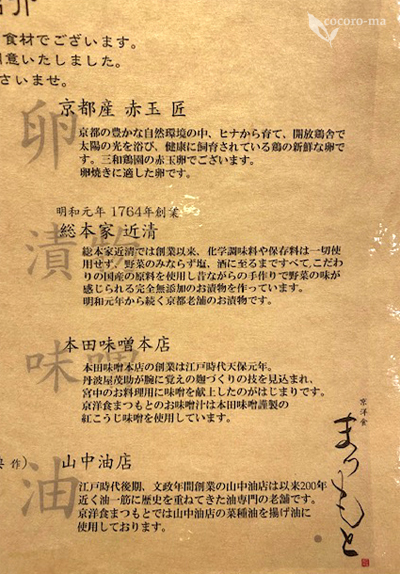 cocoro-ma
介
食材でございます。
意いたしました。
さいませ。
卵
京都産 赤玉 匠
京都の豊かな自然環境の中、ヒナから育て、開放鶏舎で
太陽の光を浴び、健康に飼育されている鶏の新鮮な卵で
す。三和鶏園の赤玉卵でございます。
卵焼きに適した卵です。
漬物
明和元年 1764年創業
総本家 近清
総本家近清では創業以来、化学調味料や保存料は一切使
用せず、野菜のみならず塩、酒に至るまですべて、こだわ
りの国産の原料を使用し昔ながらの手作りで野菜の味が
感じられる完全無添加のお漬物を作っています。
明和元年から続く京都老舗のお漬物です。
味噌
本田味噌本店
本田味噌本店の創業は江戸時代天保元年。
丹波屋茂助が腕に覚えの麹づくりの技を見込まれ、
宮中のお料理用に味噌を献上したのがはじまりです。
京洋食まつもとのお味噌汁は本田味噌謹製の
紅こうじ味噌を使用しています。
作)
油
山中油店
江戸時代後期、文政年間創業の山中油店は以来200年
近く油一筋に歴史を重ねてきた油専門の老舗です。
京洋食まつもとでは山中油店の菜種油を揚げ油に
使用しております。
京洋食
まつもと